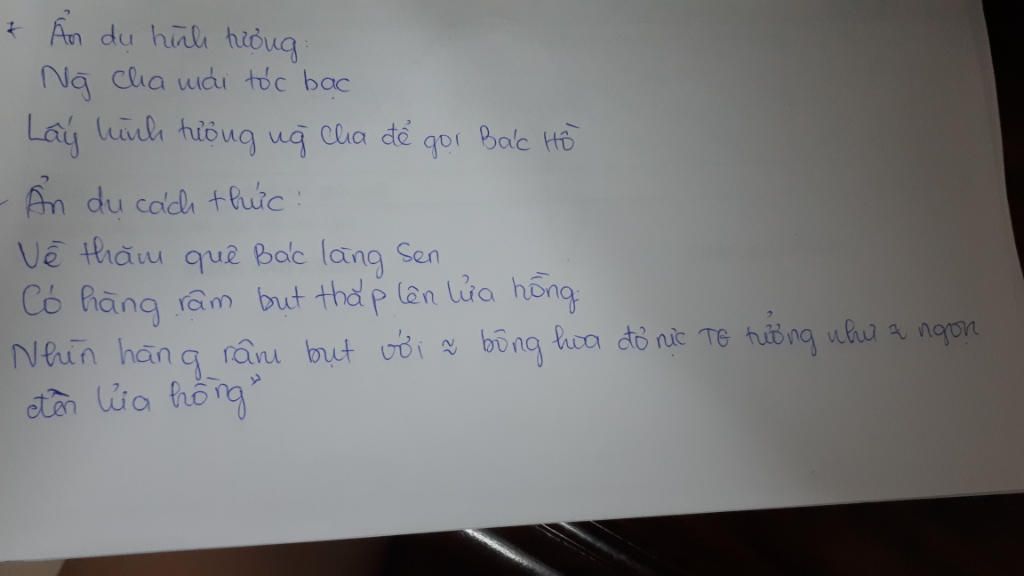 * Ẩn dụ hình tượng:
Ng̃ cha mái tóc bạc
Lấy hình tượng ng̃ cha để gọi Bác Hồ
- Ẩn dụ cách thức:
Về thăm quê Bác làng Sen
Có hàng râm bụt thắp lên lửa hồng.
Nhìn hàng râm bụt với ~ bông hoa đỏ rực TG tưởng như ~ ngọn
đèn lửa hồng"